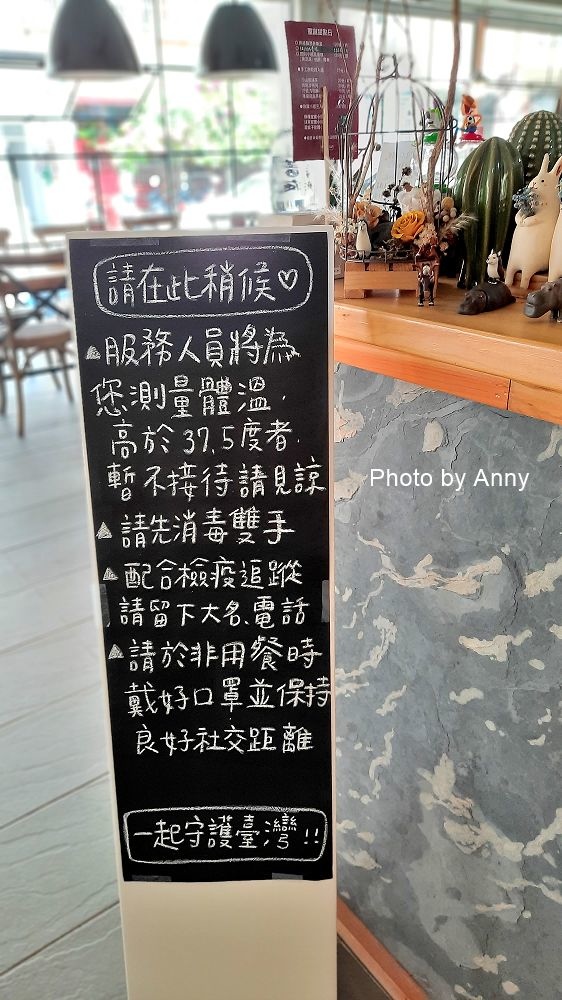 請在此稍候♡
▲服務人員將為
您測量體溫,
高於37.5度者,
暫不接待請見諒
▲請先消毒雙手
▲配合檢疫追蹤
請留下大名、電話
▲請於非用餐時
戴好口罩並保持
良好社交距離
一起守護臺灣!!
Photo by Anny